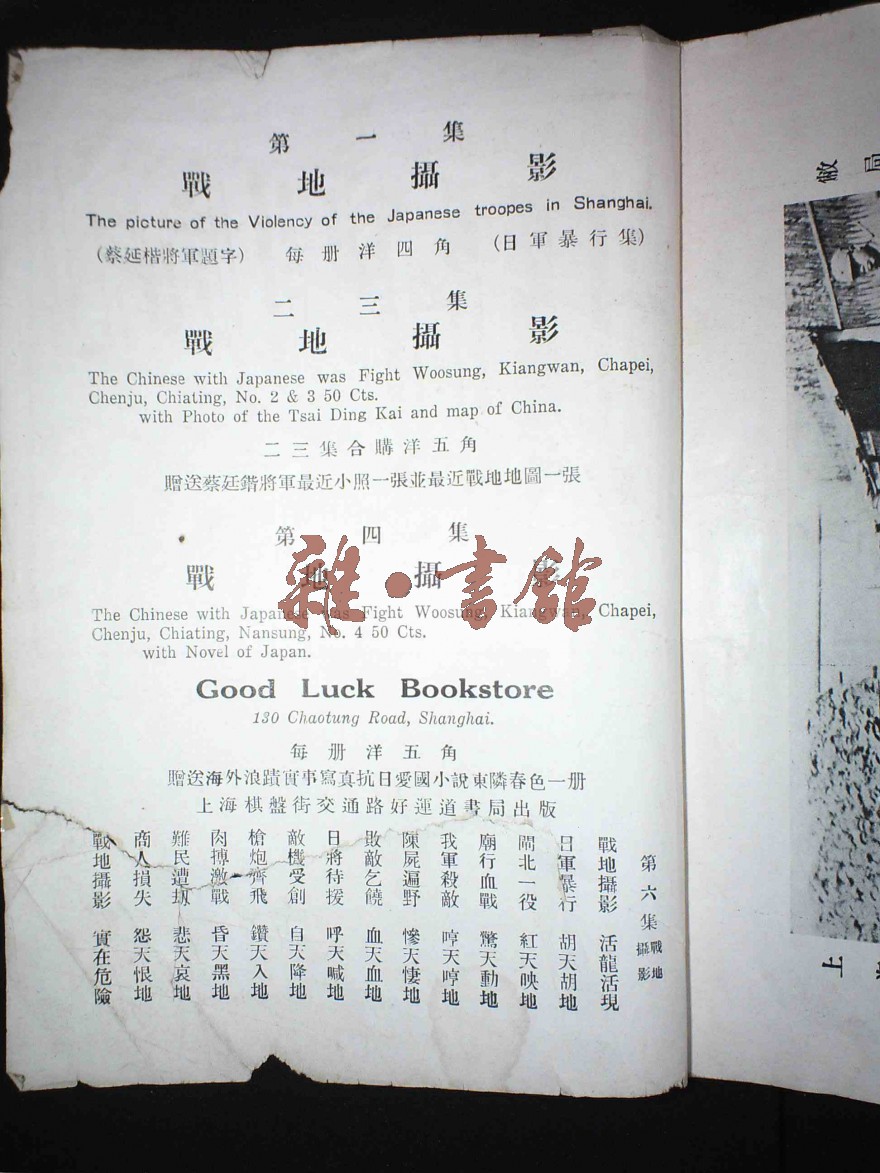 第一集
戰地攝影
The picture of the Violency of the Japanese troopes in Shanghai.
(蔡延楷將軍題字) 每册洋四角 (日軍暴行集)
二三集
戰地攝影
The Chinese with Japanese was Fight Woosung, Kiangwan, Chapei,
Chenju, Chiating, No. 2 & 3 50 Cts.
with Photo of the Tsai Ding Kai and map of China.
二三集合購洋五角
贈送蔡廷鍇將軍最近小照一張並最近戰地地圖一張
第四集
戰地攝影
雜·書館
The Chinese with Japanese was Fight Woosung, Kiangwan, Chapei,
Chenju, Chiating, Nansung, No. 4 50 Cts.
with Novel of Japan.
Good Luck Bookstore
130 Chaotung Road, Shanghai.
每册洋五角
贈送海外浪蹟實事寫真抗日愛國小說東隣春色一册
上海棋盤街交通路好運道書局出版
第六集 戰地攝影
戰地攝影 活龍活現
日軍暴行 胡天胡地
閘北一役 紅天映地
廟行血戰 驚天動地
我軍殺敵 哼天哼地
陳屍遍野 慘天悽地
敗敵乞饒 血天血地
日將待援 呼天喊地
敵機受創 自天降地
槍炮齊飛 鑽天入地
肉搏激戰 昏天黑地
難民遭刼 悲天哀地
商人損失 怨天恨地
戰地攝影 實在危險
敝局
上